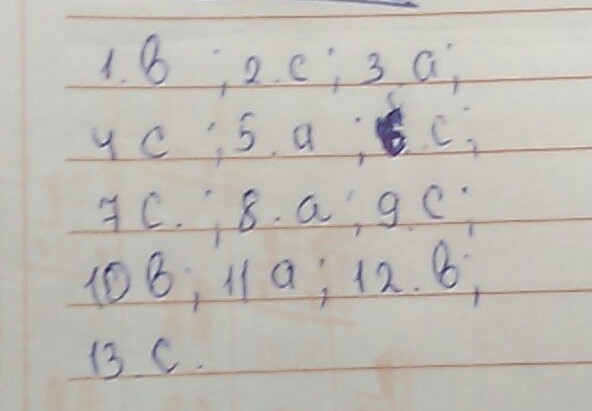 1. b ; 2. c ; 3. a ;
4 c ; 5. a ; 6. c ;
7 c. ; 8. a ; 9. c ;
10 b ; 11 a ; 12. b ;
13. c.